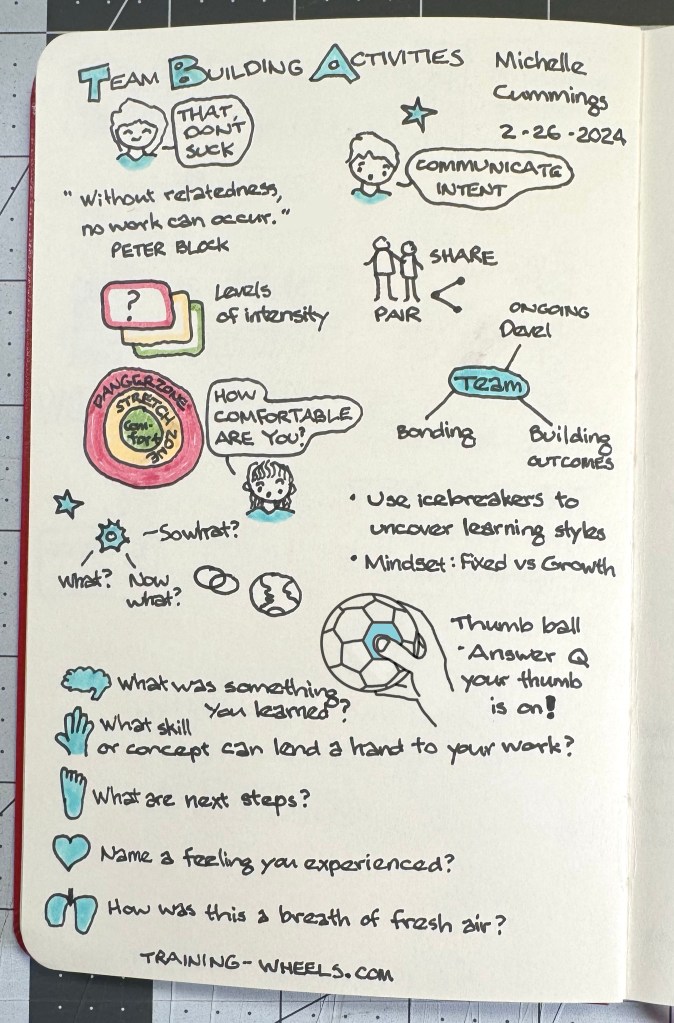 TEAM BUILDING ACTIVITIES
Michelle
Cummings
2-26-2024
THAT,
DON'T
SUCK
COMMUNICATE
INTENT
"Without relatedness,
no work can occur."
PETER BLOCK
SHARE
PAIR
?
Levels
of intensity
ONGOING
Devel
Team
Bonding
Building
OUTCOMES
DANGER ZONE
STRETCH ZONE
Com-
fort
HOW
COMFORTABLE
ARE YOU?
• Use icebreakers to
uncover learning styles
• Mindset: Fixed vs Growth
~So what?
What?
Now
what?
Thumb ball
-Answer Q
your thumb
is on!
What was something
you learned?
What skill
or concept can lend a hand to your work?
What are next steps?
Name a feeling you experienced?
How was this a breath of fresh air?
TRAINING-WHEELS.COM